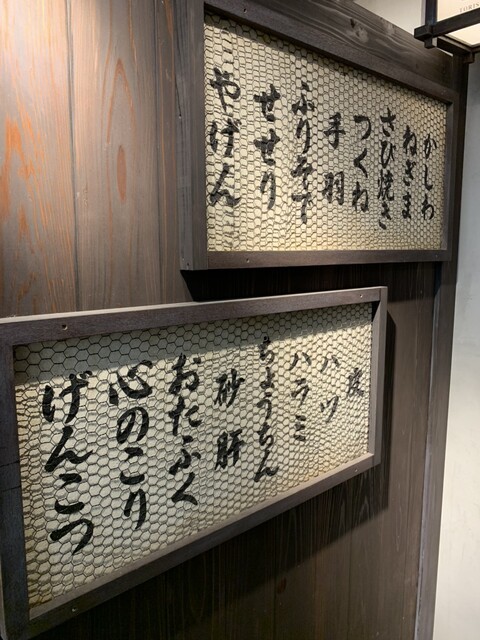 かしわ
ねぎま
さび焼き
つくね
手羽
ふりそで
せせり
やげん
皮
ハツ
ハラミ
ちょうちん
砂肝
おたふく
心のこり
げんこつ